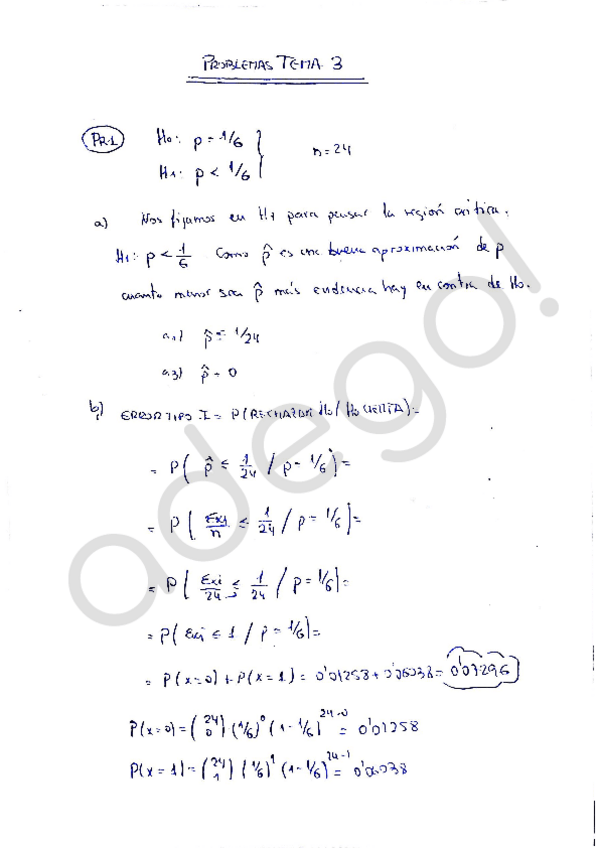 PROBLEMAS TEMA 3
PR.1 H0: p = 1/6
H1: p < 1/6 } n = 24
a) Nos fijamos en H1 para pensar la región crítica.
H1: p < 1/6 Como p̂ es una buena aproximación de p
cuanto menor sea p̂ más evidencia hay en contra de H0.
a.1) p̂ = 1/24
a.3) p̂ = 0
b) ERROR TIPO I = P(RECHAZAR H0 / H0 CIERTA) =
= P( p̂ ≤ 1/24 / p = 1/6 ) =
= P( Σxi/n ≤ 1/24 / p = 1/6 ) =
= P( Σxi/24 ≤ 1/24 / p = 1/6 ) =
= P( Σxi ≤ 1 / p = 1/6 ) =
= P(x=0) + P(x=1) = 0'01258 + 0'06038 = 0'07296
P(x=0) = (24 0) (1/6)^0 (1 - 1/6)^24-0 = 0'01258
P(x=1) = (24 1) (1/6)^1 (1 - 1/6)^24-1 = 0'06038
adego!